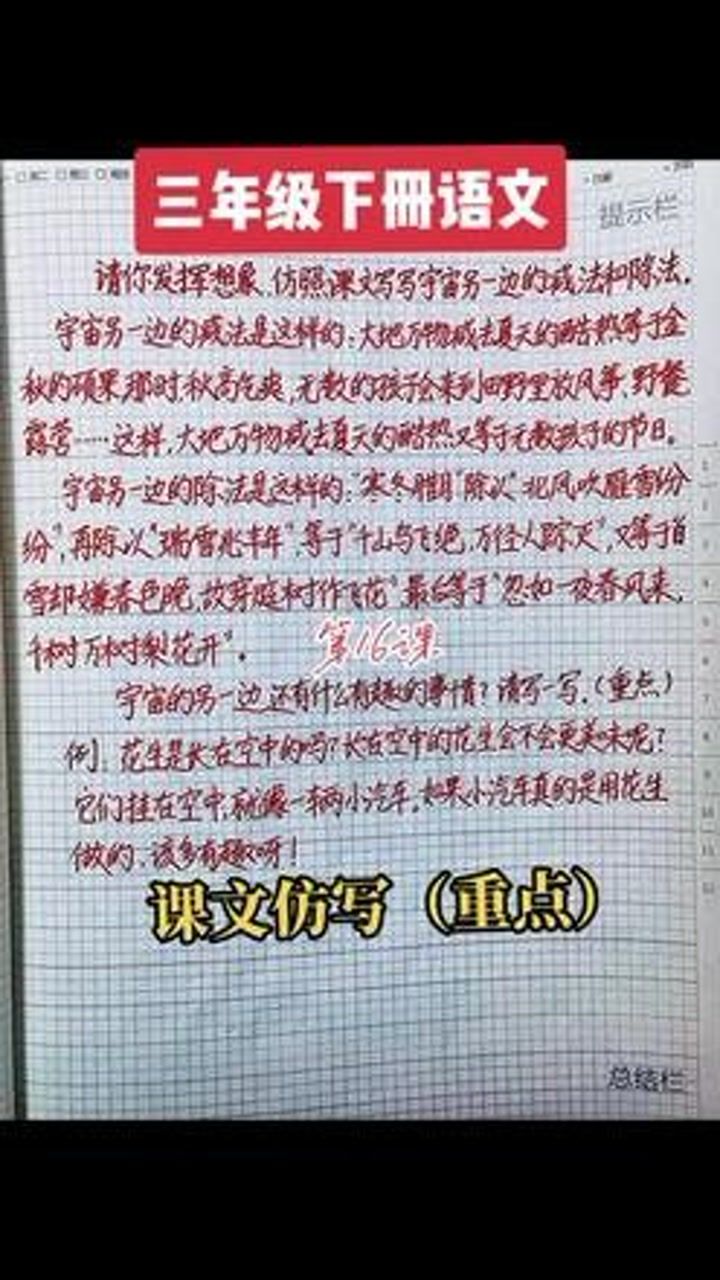 三年级下册语文
提示栏
请你发挥想象,仿照课文写写宇宙另一边的减法和除法。
宇宙另一边的减法是这样的:大地万物减去夏天的酷热等于金
秋的硕果,那时,秋高气爽,无数的孩子会来到田野里放风筝、野餐
露营……这样,大地万物减去夏天的酷热又等于无数孩子的节日。
宇宙另一边的除法是这样的:"寒冬腊月"除以"北风吹雁雪纷
纷",再除以"瑞雪兆丰年",等于"千山鸟飞绝,万径人踪灭",又等于"白
雪却嫌春色晚,故穿庭树作飞花"最后等于"忽如一夜春风来,
千树万树梨花开"。
第16课
宇宙的另一边还有什么有趣的事情?请写一写。(重点)
例:花生是长在空中的吗?长在空中的花生会不会更美味呢?
它们挂在空中,就像一辆辆小汽车,如果小汽车真的是用花生
做的,该多有趣呀!
课文仿写(重点)
总结栏